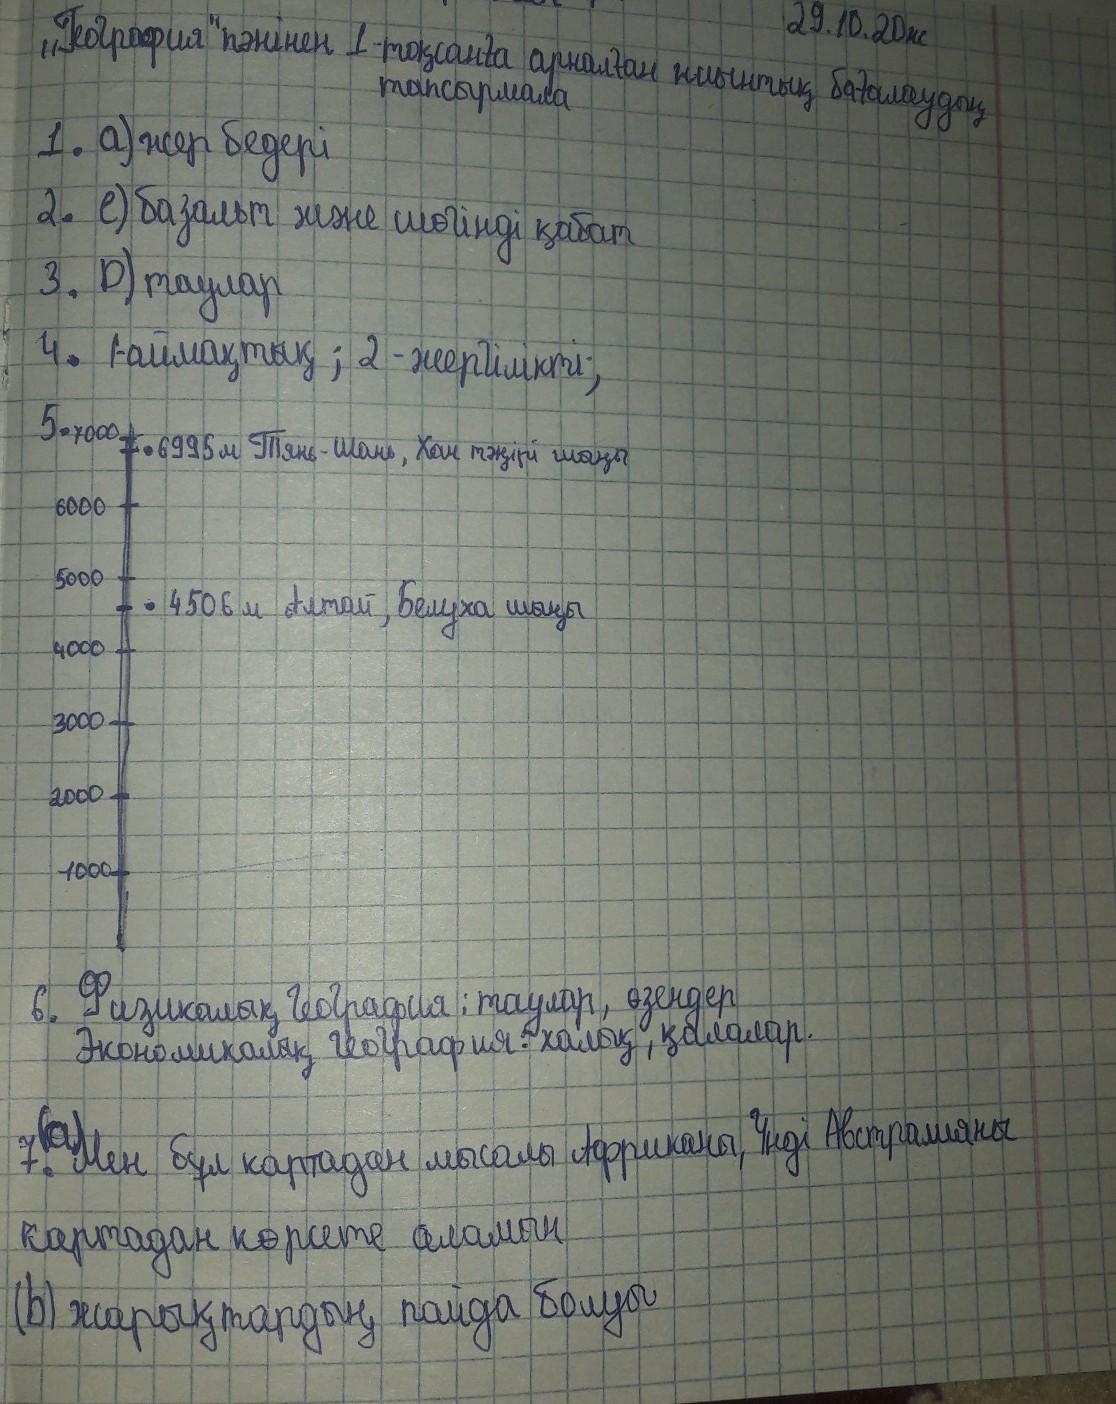 29.10.20ж
„География" пәнінен 1-тоқсанға арналған жиынтық бағалаудың
тапсырмала
1. a) жер бедері
2. e) базальт және шөгінді қабат
3. D) таулар
4. 1-аймақтық; 2-жергілікті;
5. 7000
6995м Тянь-Шань, Хан тәңірі шыңы
6000
5000
4506м Алтай, Белуха шыңы
4000
3000
2000
1000
6. Физикалық География: таулар, өзендер
Экономикалық География: халық, қалалар.
7. (a) Мен бұл картадан мысалы Африканы, Үнді Австралияны
картадан көрсете аламын
(b) жарықтардың пайда болуы